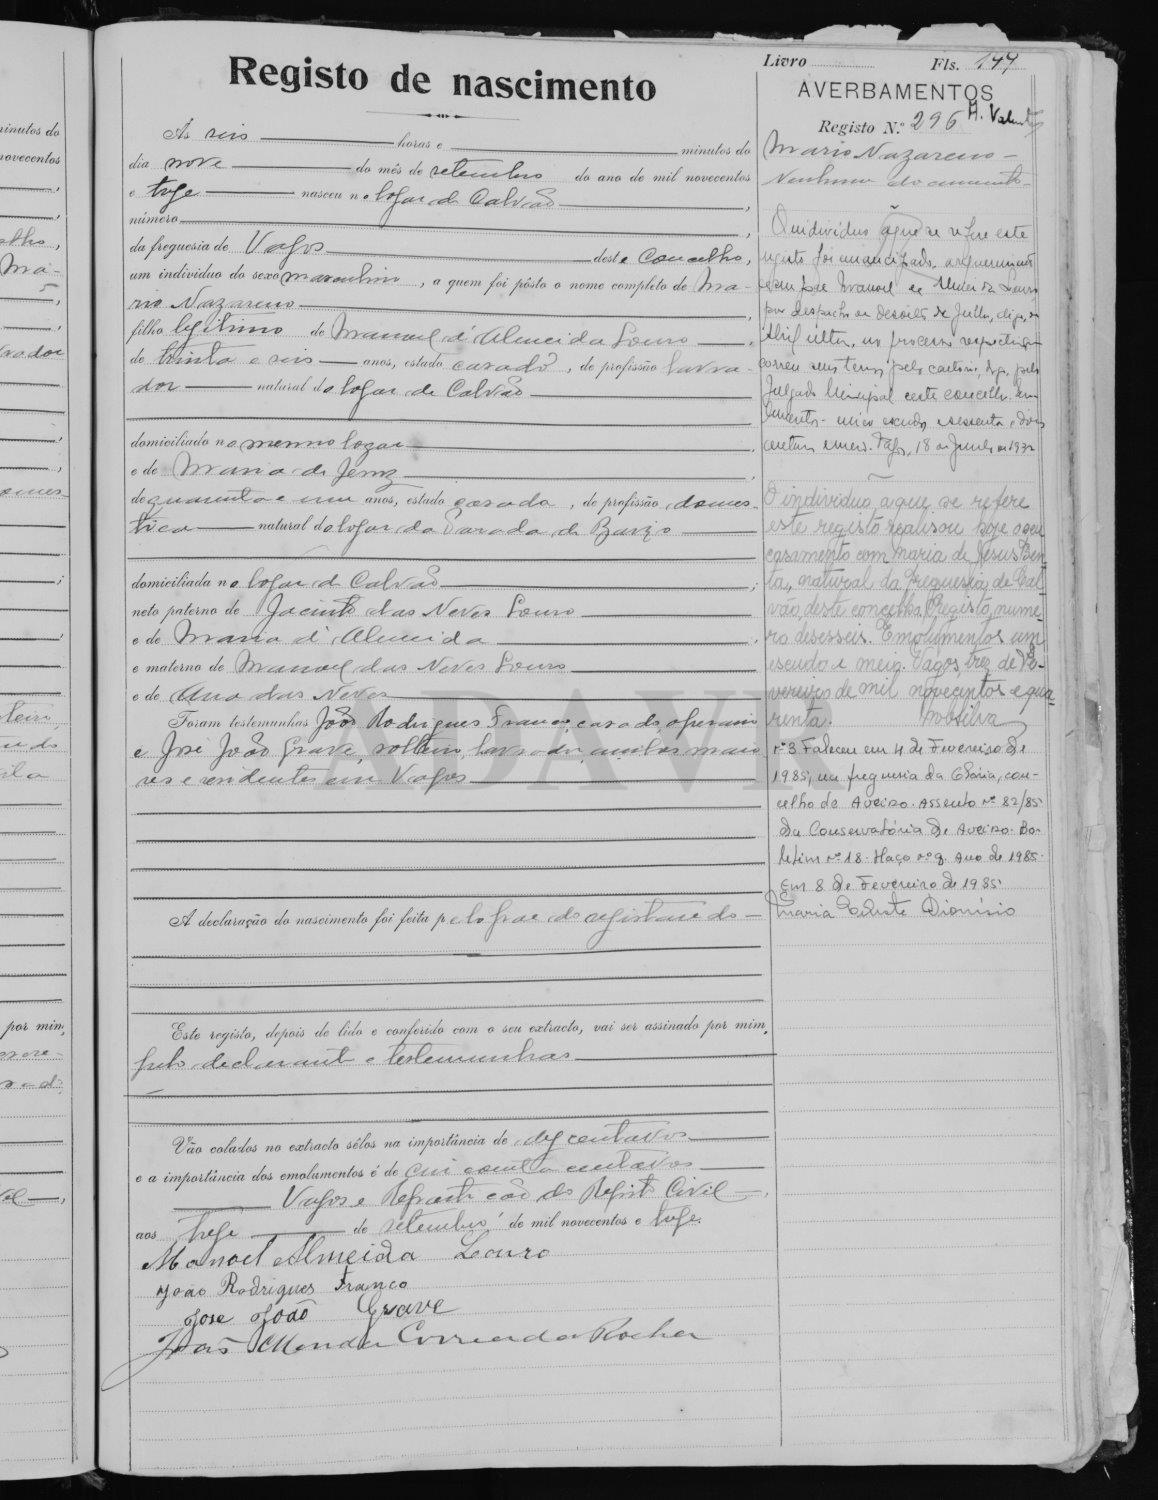 Livro Fls. 144
Registo de nascimento
Ás seis horas e minutos do
dia nove do mês de setembro do ano de mil novecentos
e treze nasceu no logar de Calvão,
número,
da freguesia de Vagos deste Concelho,
um individuo do sexo masculino, a quem foi pôsto o nome completo de Ma-
rio Nazareno,
filho legitimo de Manuel d'Almeida Louro,
de trinta e seis anos, estado casado, de profissão lavra-
dor natural do logar de Calvão
domiciliado no mesmo logar,
e de Maria de Jesus,
de quarenta e um anos, estado casada, de profissão domes-
tica natural do logar da Parada de
domiciliada no logar de Calvão;
neto paterno de Jacinto das Neves Louro
e de Maria d'Almeida,
e materno de Manoel das Neves Louro
e de Ana das Neves
Foram testemunhas João Rodrigues Franco, casado, operario
e José João Grave, solteiro, lavrador, ambos maio
res e residentes em Vagos
A declaração do nascimento foi feita pelo pae do registando
Este registo, depois de lido e conferido com o seu extracto, vai ser assinado por mim,
pelo declarante e testemunhas
Vão colados no extracto sêlos na importância de dez centavos
e a importância dos emolumentos é de cincoenta centavos
Vagos e Repartição do Registo Civil,
aos treze de setembro de mil novecentos e treze.
Manoel Almeida Louro
João Rodrigues Franco
Jose João Grave
João Mendes Correia da Rocha
AVERBAMENTOS
Registo N.º 296
Mario Nazareno
Nenhum documento
O individuo a que se refere este
registo foi emancipado a requerimento
de seu pae Manoel de Almeida Louro
por despacho de dezoito de Julho, digo, de
Abril ultimo, no processo respectivo que
correu seus termos pelo cartorio, digo, pelo
Julgado Municipal deste concelho. Emo-
lumentos - um escudo e sessenta e dois
centavos. Vagos, 18 de Junho de 1932
O individuo a que se refere
este registo realisou hoje o seu
casamento com Maria de Jesus Ben-
ta, natural da freguesia de Cal-
vão, deste concelho. Registo nume-
ro desesseis. Emolumentos um
escudo e meio. Vagos, trez de Fe-
vereiro de mil novecentos e qua-
renta.
nº 3 Faleceu em 4 de Fevereiro de
1985, na freguesia da Glória, con-
celho de Aveiro. Assento nº 82/85
da Conservatória de Aveiro. Bo-
letim nº 18. Maço nº 9. Ano de 1985.
Em 8 de Fevereiro de 1985
Maria Celeste Dionisio
ADAVR